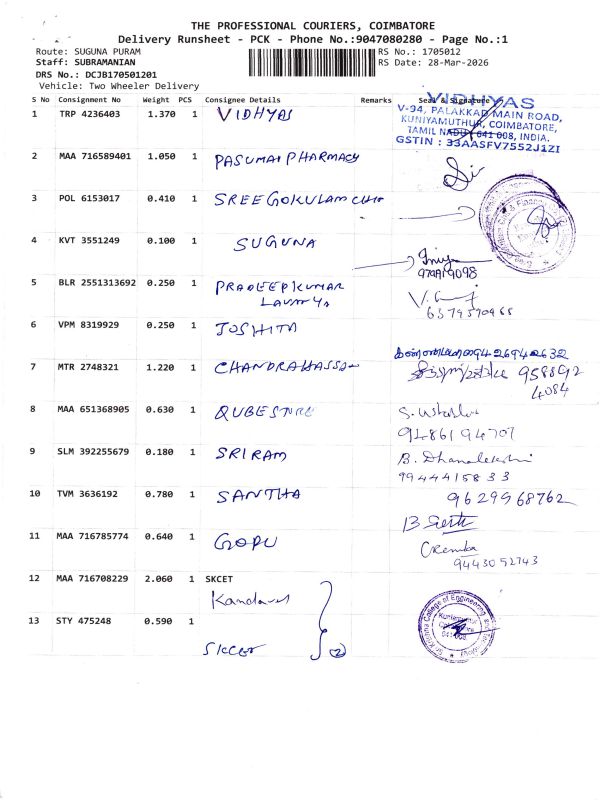 THE PROFESSIONAL COURIERS, COIMBATORE
Delivery Runsheet - PCK - Phone No.:9047080280 - Page No.:1
Route: SUGUNA PURAM RS No.: 1705012
Staff: SUBRAMANIAN RS Date: 28-Mar-2026
DRS No.: DCJB170501201
Vehicle: Two Wheeler Delivery
S No Consignment No Weight PCS Consignee Details Remarks Seal & Signature
1 TRP 4236403 1.370 1 VIDHYAS
VIDHYAS
V-94, PALAKKAD MAIN ROAD,
KUNIYAMUTHUR, COIMBATORE,
TAMIL NADU 641 008, INDIA.
GSTIN : 33AASFV7552J1ZI
2 MAA 716589401 1.050 1 PASUMAI PHARMACY
3 POL 6153017 0.410 1 SREE GOKULAM
4 KVT 3551249 0.100 1 SUGUNA
5 BLR 2551313692 0.250 1 PRADEEPKUMAR
6379570968
6 VPM 8319929 0.250 1 JOSHITA
9426942632
7 MTR 2748321 1.220 1 CHANDRAHASSAN
958892
4084
8 MAA 651368905 0.630 1 QUBESTORE
9486194707
9 SLM 392255679 0.180 1 SRIRAM
B. Dhanalakshmi
9944415833
10 TVM 3636192 0.780 1 SANTHA 9629968762
11 MAA 716785774 0.640 1 GOPU
9443052743
12 MAA 716708229 2.060 1 SKCET
13 STY 475248 0.590 1
SKCET (2)
Sri Krishna College of Engineering and Technology
Kuniamuthur
Coimbatore
641 008